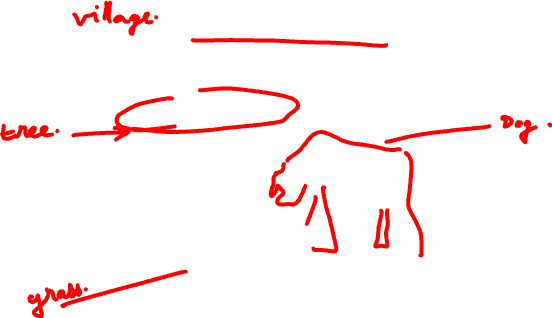 village.
tree.
Dog.
grass.